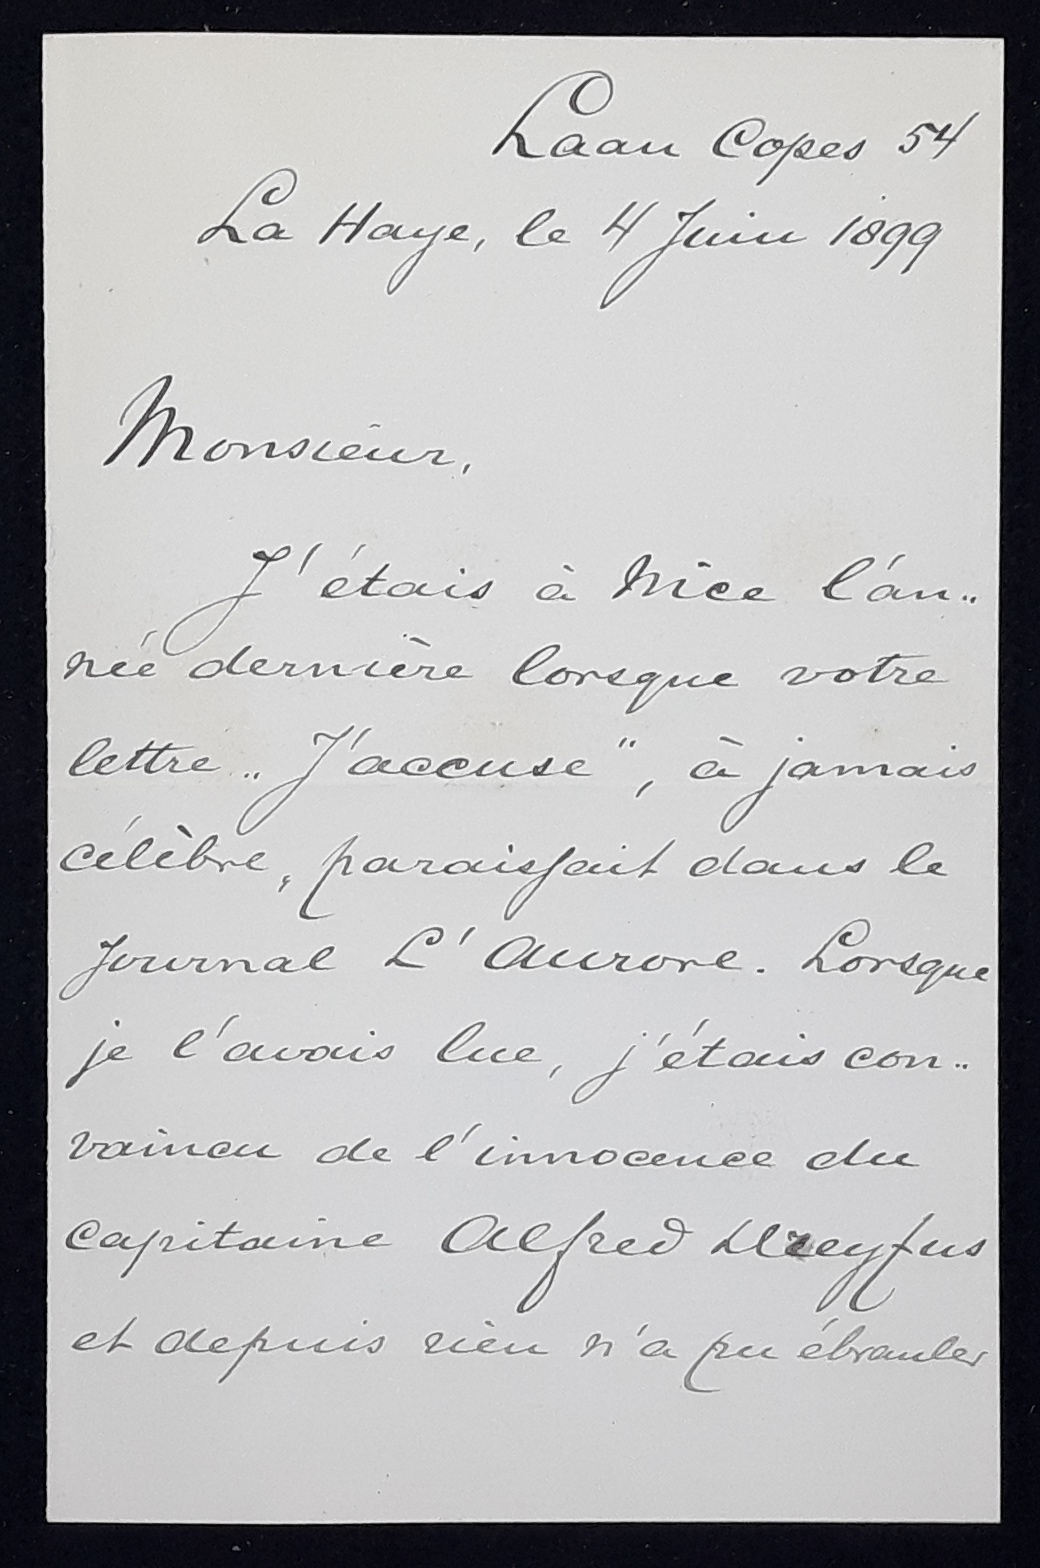 Laan Copes 54
La Haye, le 4 Juin 1899
Monsieur,
J'étais à Nice l'an„
née dernière lorsque votre
lettre „J'accuse", à jamais
célèbre, paraissait dans le
Journal L'Aurore. Lorsque
je l'avais lue, j'étais con„
vaincu de l'innocence du
capitaine Alfred Dreyfus
et depuis rien n'a pu ébranler